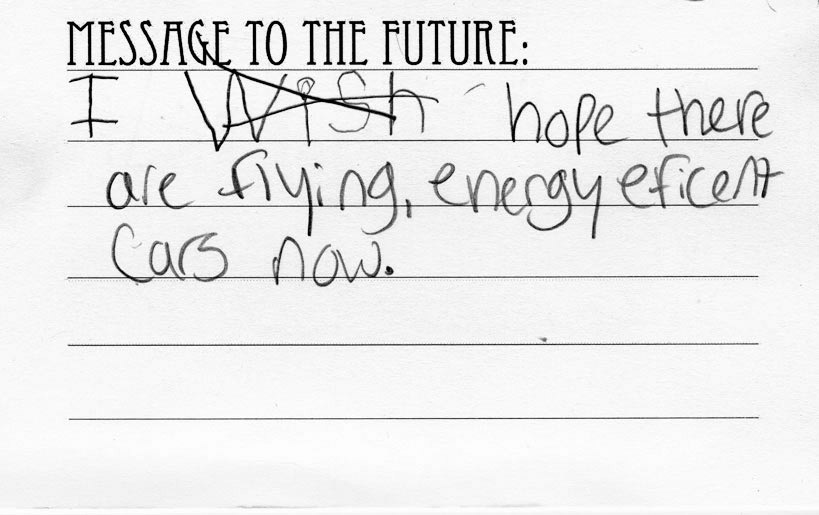 MESSAGE TO THE FUTURE:
I Wish hope there
are flying, energy eficent
Cars now.